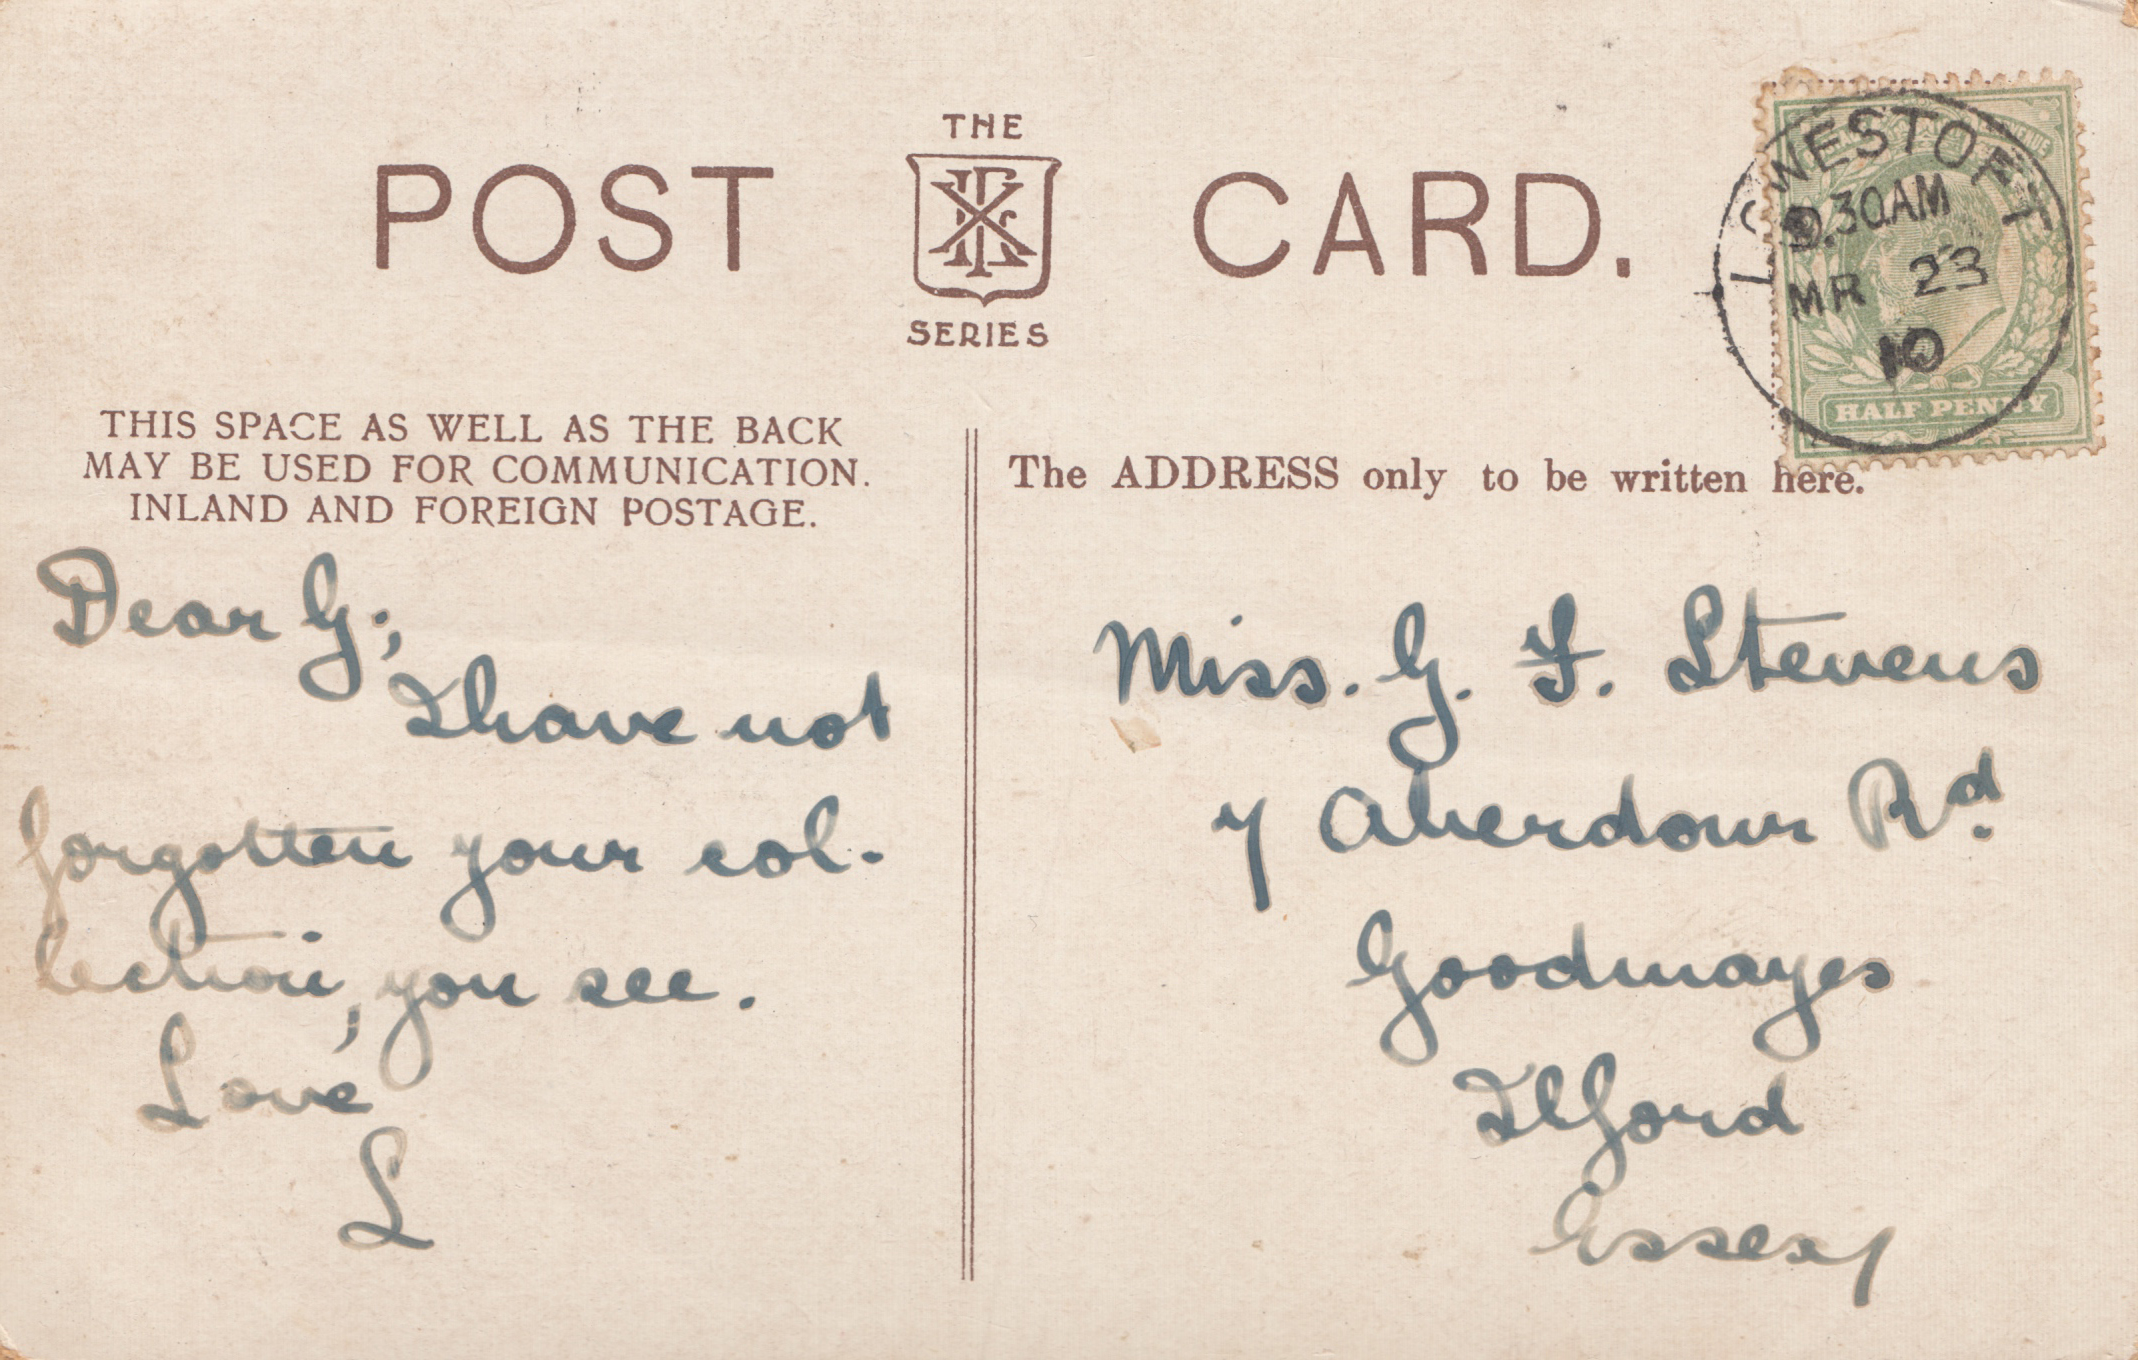 THE
POST CARD.
SERIES
LOWESTOFT
9.30AM
MR 23
10
HALF PENNY
THIS SPACE AS WELL AS THE BACK
MAY BE USED FOR COMMUNICATION.
INLAND AND FOREIGN POSTAGE.
The ADDRESS only to be written here.
Dear G.,
I have not
forgotten your col-
lection, you see.
Love
L
Miss. G. F. Stevens
7 Aberdour Rd.
Goodmayes
Ilford
Essex